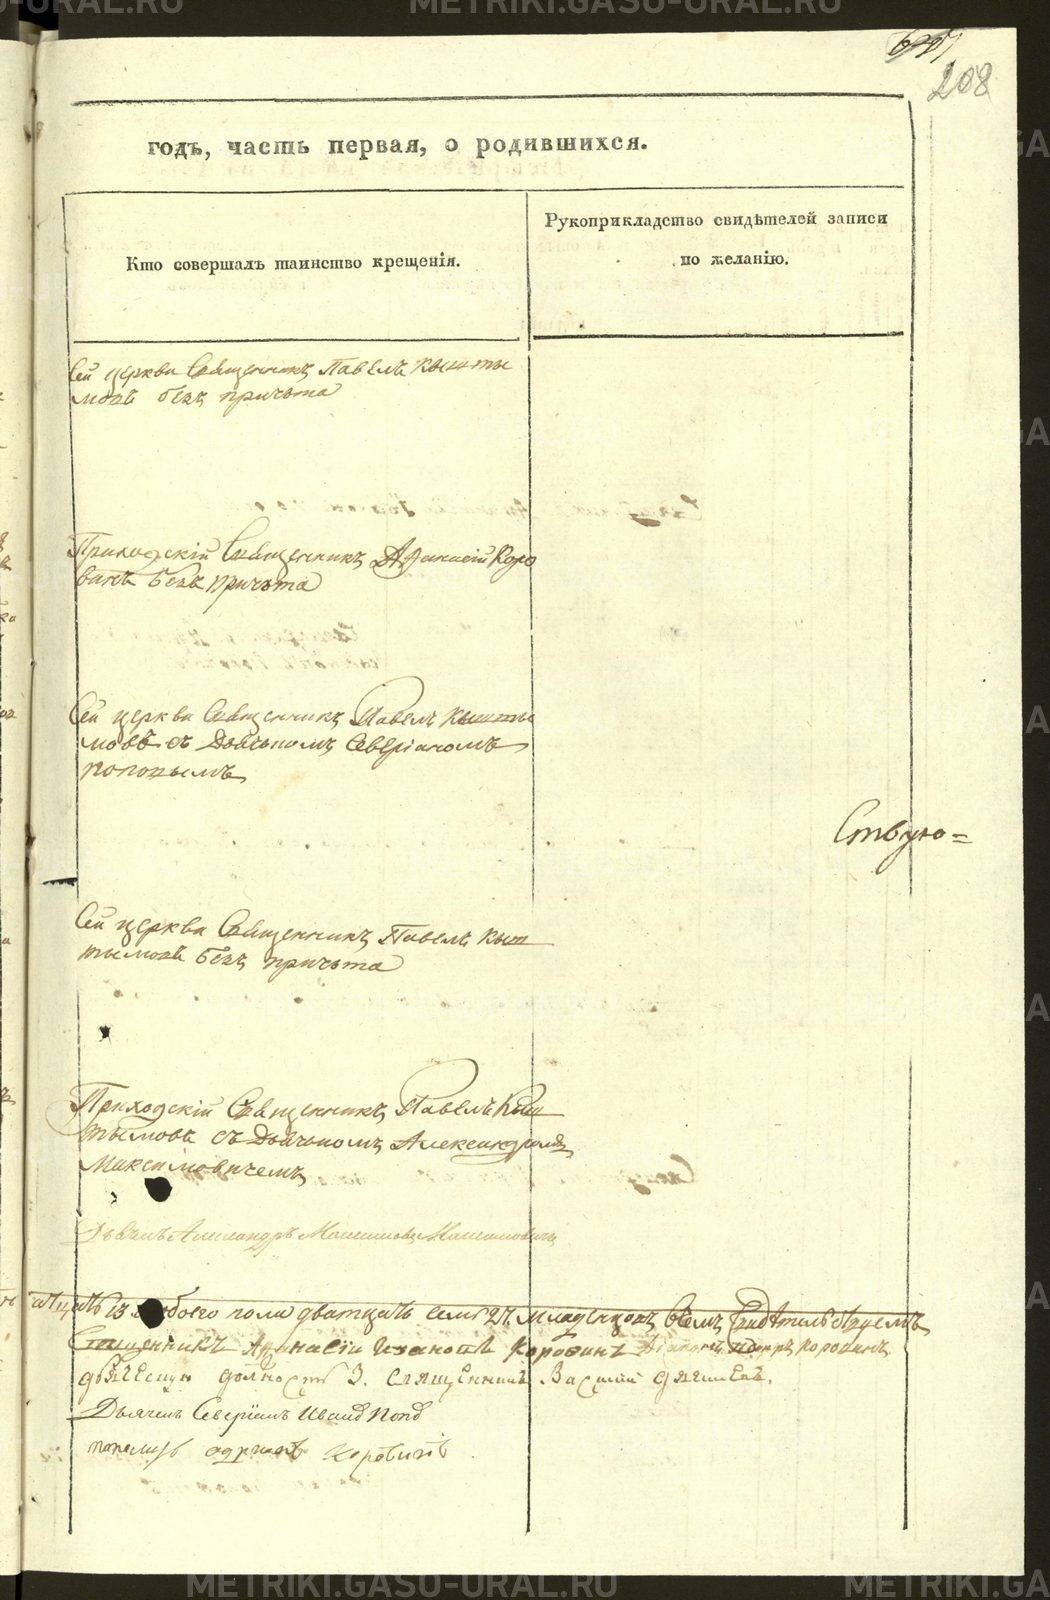 METRIKI.GASO-URAL.RU
208
годъ, часть первая, о родившихся.
Кто совершалъ таинство крещенія.
Рукоприкладство свидѣтелей записи
по желанію.
Сей церкви Священникъ Павелъ Кышты
мовъ безъ причьта
Приходскій Священникъ Афанасій Коро
винъ безъ причьта
Сей церкви Священникъ Павелъ Кышты
мовъ съ Дьячкомъ Северіаномъ
Поповымъ
Ствую=
Сей церкви Священникъ Павелъ Кыш
тымовъ безъ причьта
Приходскій Священникъ Павелъ Кыш
тымовъ съ Дьячкомъ Александромъ
Максимовичемъ
Дьячекъ Александръ Максимовичъ
обоего пола дватцать семь 27 младенцовъ всемъ Свидѣтельствуемъ
Священникъ Афанасій Ивановъ Коровинъ Коровинъ
должность З. священникъ Василій
Дьячекъ Северіанъ Попо
METRIKI.GASO-URAL.RU